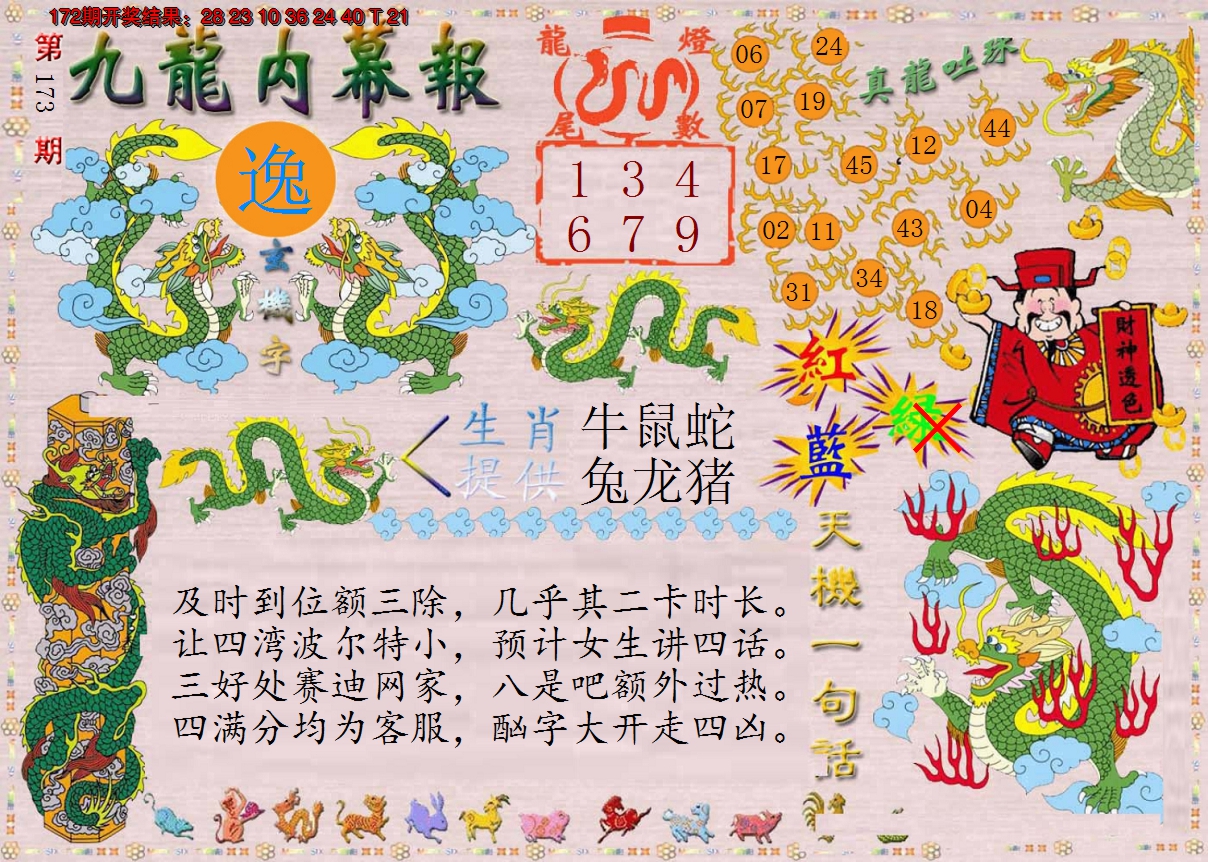 172期开奖结果：28 23 10 36 24 40 T 21
第173期
九龍内幕報
逸
玄機字
龍燈尾數
1 3 4
6 7 9
真龍吐珠
06 24
07 19
17 45 12 44
02 11 43 04
31 34 18
紅 綠 藍
財神透色
生肖 牛鼠蛇
提供 兔龙猪
天機一句话
及时到位额三除，几乎其二卡时长。
让四湾波尔特小，预计女生讲四话。
三好处赛迪网家，八是吧额外过热。
四满分均为客服，酗字大开走四凶。